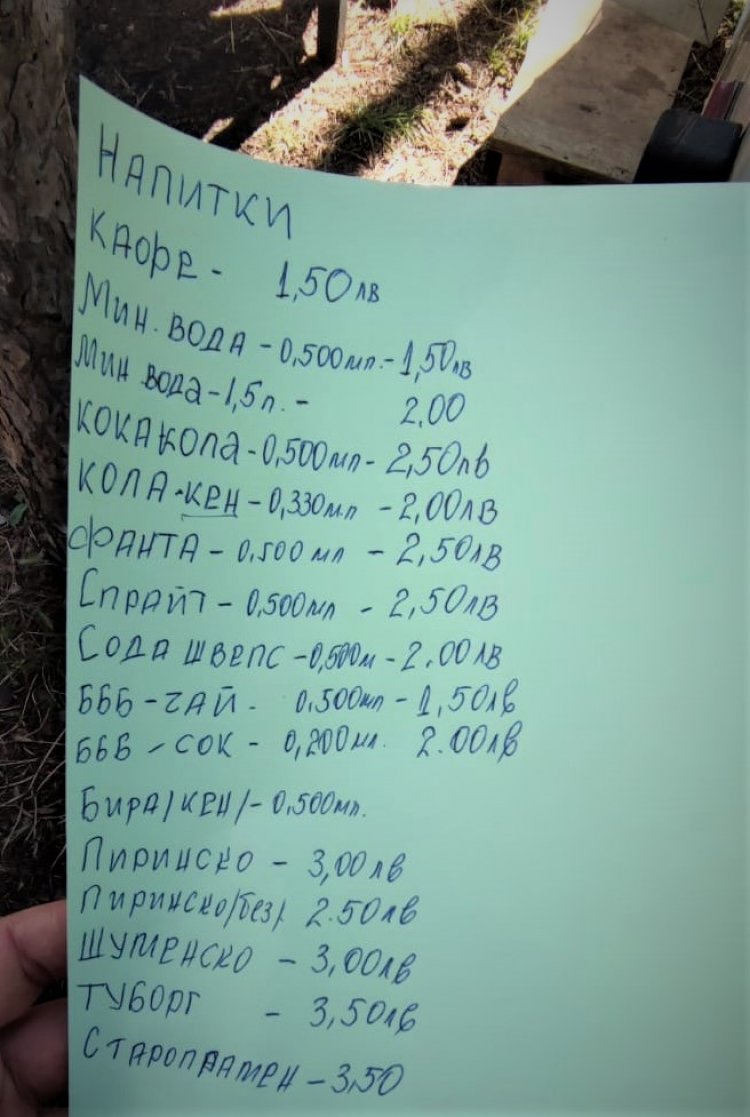 НАПИТКИ
КАФЕ - 1,50лв
Мин. ВОДА - 0,500мл. - 1,50лв
Мин вода - 1,5л. - 2.00
КОКАКОЛА - 0,500мл - 2,50лв
КОЛА - КЕН - 0,330мл - 2,00ЛВ
ФАНТА - 0.500мл - 2,50ЛВ
СПРАЙТ - 0,500мл - 2,50ЛВ
СОДА ШВЕПС - 0,500м - 2.00ЛВ
БББ - ЧАЙ - 0.500мл - 1,50лв
БББ - СОК - 0,200мл. 2.00лв
БИРА /КЕН/ - 0,500мл.
ПИРИНСКО - 3,00лв
ПИРИНСКО /без/ 2.50лв
ШУМЕНСКО - 3,00лв
ТУБОРГ - 3,50лв
СТАРОПРАМЕН - 3,50